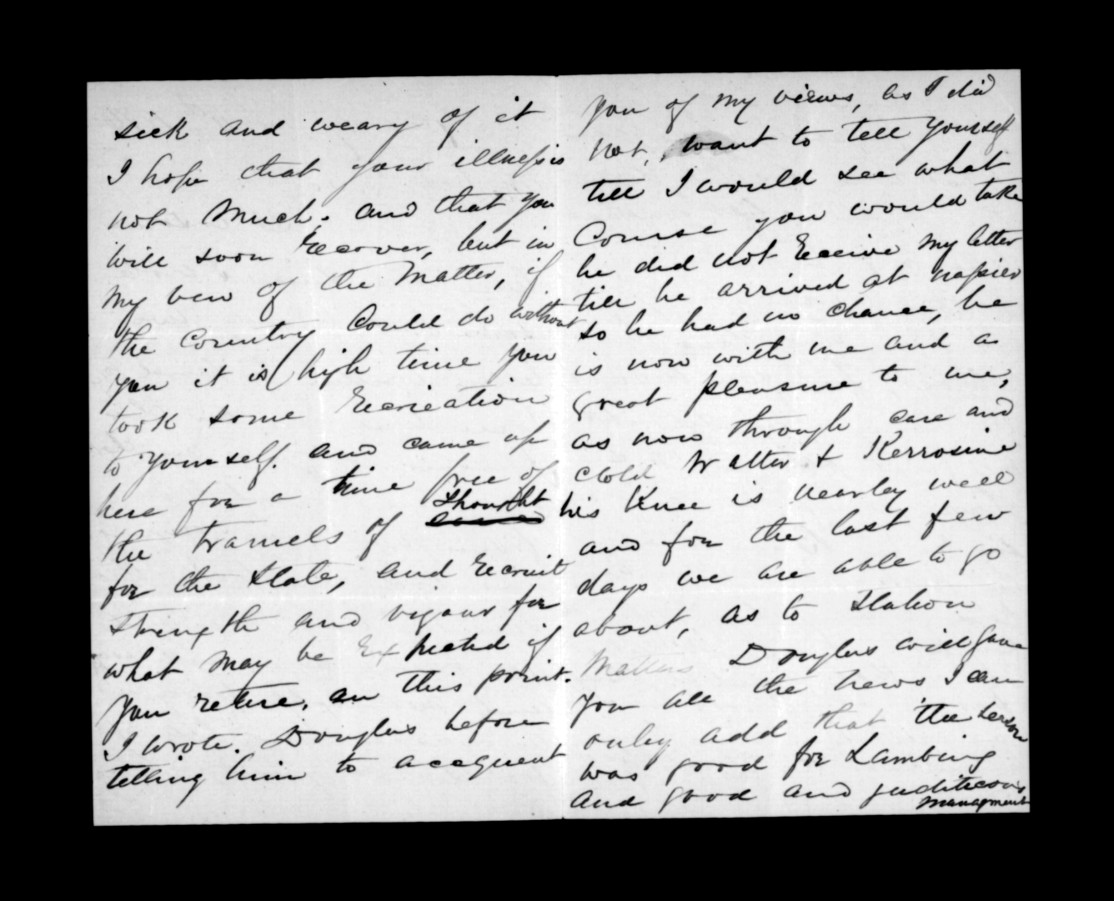 sick and weary of it
I hope that your illness is
not much. and that you
will soon recover, but in
my vew of the Matter, if
the Country Could do without
you it is high time you
took some recreation
to yourself. and came up
here for a time free of
the tramels of thought
for the State, and recruit
strength and vigour for
what may be expected if
you retire. on this point.
I wrote. Douglas before
telling him to acequent
you of my views, as I did
not, want to tell yourself
till I would see what
Course you would take
he did not receive my letter
till he arrived at napier
so he had no chance, he
is now with me and a
great pleasure to me,
as now through care and
clold Watter & Kerrosine
his Knee is nearley well
and for the last few
days we are able to go
about, as to Station
Matters Douglas will gave
you all the news I can
only add that the season
was good for Lambing
and good and juditicous
managment